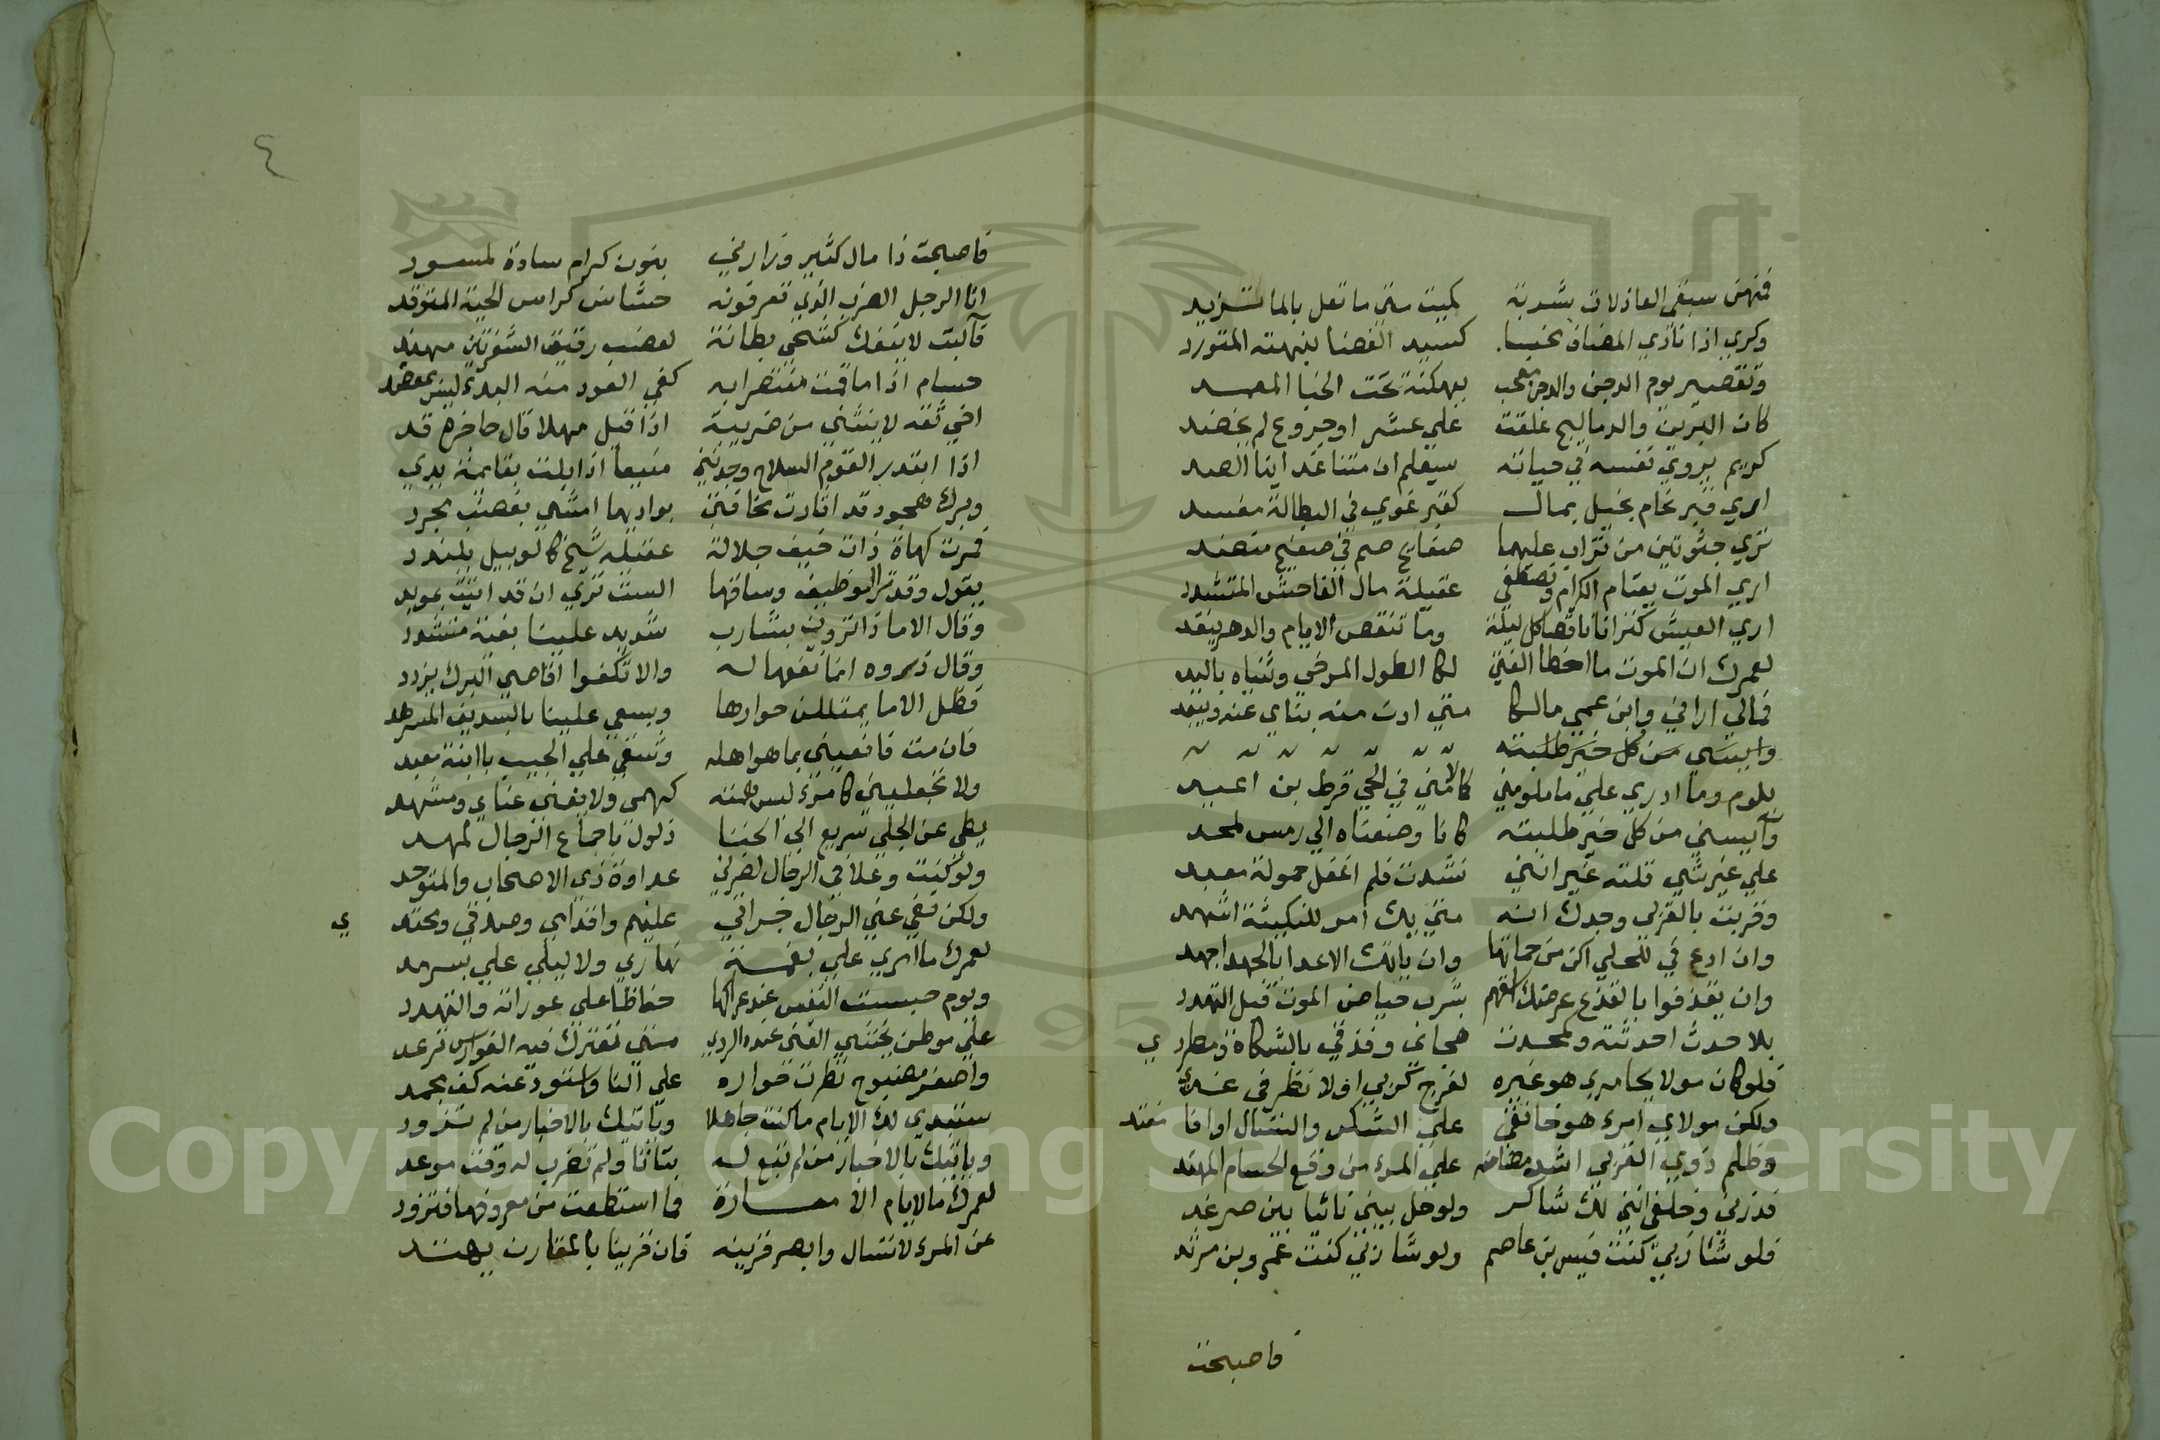 فمنهن سبقي العاذلات بشربة كميت متي ما تعل بالما تزبد
وكري اذا نادي المضاف محنبا كسيد الغضا نبهته المتورد
وتقصير يوم الدجن والدجن معجب ببهكنة تحت الخبا المعمد
كان البرين والدماليج علقت علي عشر او خروع لم يخضد
كريم يروي نفسه في حياته ستعلم ان متنا غدا اينا الصد
اري قبر نحام بخيل بماله كقبر غوي في البطالة مفسد
تري جثوتين من تراب عليهما صفايح صم في صفيح منضد
اري الموت يعتام الكرام ويصطفي عقيلة مال الفاحش المتشدد
اري العيش كنزا ناقصا كل ليلة وما تنقص الايام والدهر ينفد
لعمرك ان الموت ما اخطا الفتي لكا الطول المرخي وثنياه باليد
فمالي اراني وابن عمي مالكا متي ادن منه يناي عني ويبعد
وايسني من كل خير طلبته
يلوم وما ادري علي ما يلومني كما لامني في الحي قرط بن اعبد
وآيسني من كل خير طلبته كانا وضعناه الي رمس ملحد
علي غير شي قلته غير انني نشدت فلم اغفل حمولة معبد
وقربت بالقربي وجدك انه متي يك امر للنكيثة اشهد
وان ادع في للجلي اكن من حماتها وان ياتك الاعدا بالجهد اجهد
وان يقذفوا بالقذع عرضك اسقهم بشرب حياض الموت قبل التهدد
بلا حدث احدثته وكمحدث هجاني وقذفي بالشكاة ومطردي
فلو كان مولاي امري هو غيره لفرج كربي او لانظرني غدي
ولكن مولاي امرء هو خانقي علي الشكر والتسال او انا مفتد
وظلم ذوي القربي اشد مضاضه علي المرء من وقع الحسام المهند
فذرني وخلقي انني لك شاكر ولو حل بيتي نائيا بين ضرغد
فلو شا ربي كنت قيس بن عاصم ولو شا ربي كنت عمرو بن مرثد
فاصبحت
٤
فاصبحت ذا مال كثير وزارني بنون كرام سادة لمسود
انا الرجل الضرب الذي تعرفونه خشاش كراس الحية المتوقد
فآليت لا ينفك كشحي بطانة لعضب رقيق الشفرتين مهند
حسام اذا ما قمت منتصرا به كفي العود منه البدء ليس بمعضد
اخي ثقة لا ينثني من ضريبة اذا قيل مهلا قال حاجزه قد
اذا ابتدر القوم السلاح وجدتني منيعا اذا بلت بقايمة يدي
وبرك هجود قد اثارت مخافتي بواديها امشي بعضب مجرد
فمرت كهاة ذات خيف جلالة عقيلة شيخ كالوبيل يلندد
يقول وقد تر الوظيف وساقها الست تري ان قد اتيت بمويد
وقال الا ماذا ترون بشارب شديد علينا بغيه متشدد
وقال ذروه انما نفعها له والا تكفوا اقاصي البرك يزدد
فظل الاما يمتللن حوارها ويسعي علينا بالسديف المسرهد
فان مت فانعيني بما هو اهله وشقي علي الجيب يا ابنة معبد
ولا تجعليني كامرء ليس همه كهمي ولا يغني غناي ومشهد
بطي عن الجلي سريع الي الخنا ذلول باجماع الرجال ملهد
ولو كنت وغلا في الرجال لضرني عداوة ذي الاصحاب والمتوحد
ولكن نفي عني الرجال جراتي عليهم واقدامي وصدقي ومحتدي
لعمرك ما امري علي بغمة نهاري ولا ليلي علي بسرمد
ويوم حبست النفس عند عراكها حفاظا علي عوراته والتهدد
علي موطن يخشي الفتي عنده الردي متي تعترك فيه الفرايص ترعد
واصفر مضبوح نظرت حواره علي النار واستودعته كف مجمد
ستبدي لك الايام ما كنت جاهلا وياتيك بالاخبار من لم تزود
وياتيك بالاخبار من لم تبع له بتاتا ولم تضرب له وقت موعد
لعمرك ما الايام الا معارة فما استطعت من معروفها فتزود
عن المرء لا تسال وابصر قرينه فان قرينا بالمقارن يهتد